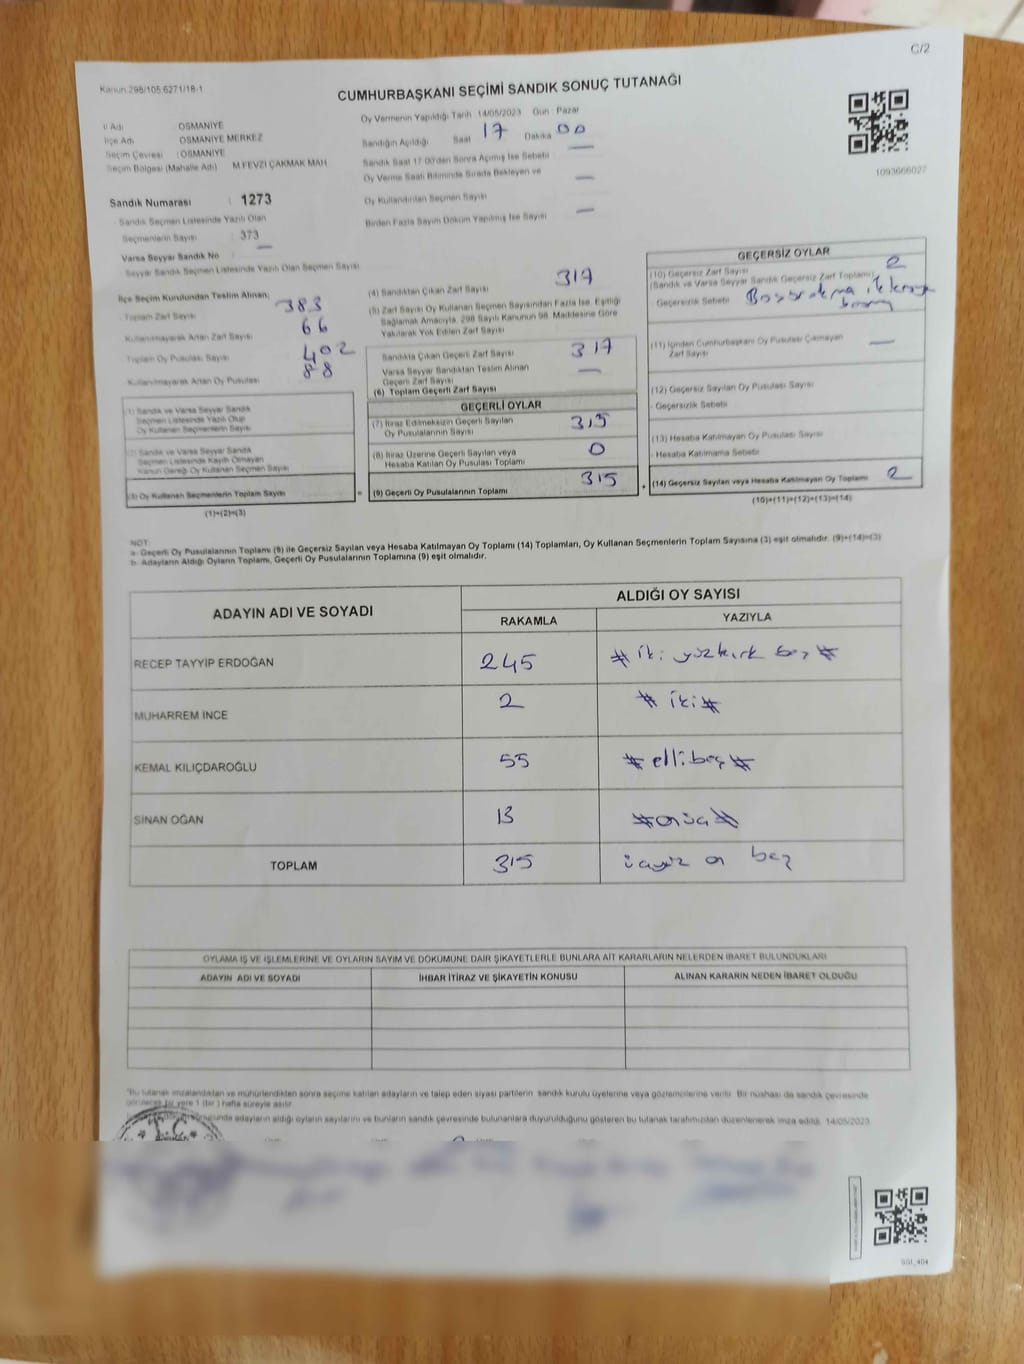 C/2
Kanun:298/105,6271/18-1
CUMHURBAŞKANI SEÇİMİ SANDIK SONUÇ TUTANAĞI
İl Adı OSMANİYE
İlçe Adı OSMANİYE MERKEZ
Seçim Çevresi : OSMANİYE
Seçim Bölgesi (Mahalle Adı) M.FEVZİ ÇAKMAK MAH
Sandık Numarası : 1273
Sandık Seçmen Listesinde Yazılı Olan
Seçmenlerin Sayısı : 373
Varsa Seyyar Sandık No —
Seyyar Sandık Seçmen Listesinde Yazılı Olan Seçmen Sayısı
Oy Vermenin Yapıldığı Tarih 14/05/2023 Gün : Pazar
Sandığın Açıldığı Saat 17 Dakika 00
Sandık Saat 17:00'den Sonra Açılmış İse Sebebi —
Oy Verme Saati Bitiminde Sırada Bekleyen ve
Oy Kullandırılan Seçmen Sayısı —
Birden Fazla Sayım Döküm Yapılmış İse Sayısı —
1093666027
İlçe Seçim Kurulundan Teslim Alınan;
Toplam Zarf Sayısı 383
Kullanılmayarak Artan Zarf Sayısı 66
Toplam Oy Pusulası Sayısı 402
Kullanılmayarak Artan Oy Pusulası 88
(1) Sandık ve Varsa Seyyar Sandık
Seçmen Listesinde Yazılı Olup
Oy Kullanan Seçmenlerin Sayısı
(2) Sandık ve Varsa Seyyar Sandık
Seçmen Listesinde Kayıtlı Olmayan
Kanun Gereği Oy Kullanan Seçmen Sayısı
(3) Oy Kullanan Seçmenlerin Toplam Sayısı
(1)+(2)=(3)
(4) Sandıktan Çıkan Zarf Sayısı 317
(5) Zarf Sayısı Oy Kullanan Seçmen Sayısından Fazla İse, Eşitliği
Sağlamak Amacıyla, 298 Sayılı Kanunun 98. Maddesine Göre
Yakılarak Yok Edilen Zarf Sayısı
Sandıkta Çıkan Geçerli Zarf Sayısı 317
Varsa Seyyar Sandıktan Teslim Alınan
Geçerli Zarf Sayısı —
(6) Toplam Geçerli Zarf Sayısı
GEÇERLİ OYLAR
(7) İtiraz Edilmeksizin Geçerli Sayılan
Oy Pusulalarının Sayısı 315
(8) İtiraz Üzerine Geçerli Sayılan veya
Hesaba Katılan Oy Pusulası Toplamı 0
= (9) Geçerli Oy Pusulalarının Toplamı 315
GEÇERSİZ OYLAR
(10) Geçersiz Zarf Sayısı 2
(Sandık ve Varsa Seyyar Sandık Geçersiz Zarf Toplamı)
- Geçersizlik Sebebi
(11) İçinden Cumhurbaşkanı Oy Pusulası Çıkmayan
Zarf Sayısı —
(12) Geçersiz Sayılan Oy Pusulası Sayısı
- Geçersizlik Sebebi
(13) Hesaba Katılmayan Oy Pusulası Sayısı
- Hesaba Katılmama Sebebi
+ (14) Geçersiz Sayılan veya Hesaba Katılmayan Oy Toplamı 2
(10)+(11)+(12)+(13)=(14)
NOT:
a- Geçerli Oy Pusulalarının Toplamı (9) ile Geçersiz Sayılan veya Hesaba Katılmayan Oy Toplamı (14) Toplamları, Oy Kullanan Seçmenlerin Toplam Sayısına (3) eşit olmalıdır. (9)+(14)=(3)
b- Adayların Aldığı Oyların Toplamı, Geçerli Oy Pusulalarının Toplamına (9) eşit olmalıdır.
ADAYIN ADI VE SOYADI ALDIĞI OY SAYISI
RAKAMLA YAZIYLA
RECEP TAYYİP ERDOĞAN 245 # iki yüzkırk beş #
MUHARREM İNCE 2 # iki #
KEMAL KILIÇDAROĞLU 55 # ellibeş #
SİNAN OĞAN 13 # onüç #
TOPLAM 315 üçyüz on beş
OYLAMA İŞ VE İŞLEMLERİNE VE OYLARIN SAYIM VE DÖKÜMÜNE DAİR ŞİKAYETLERLE BUNLARA AİT KARARLARIN NELERDEN İBARET BULUNDUKLARI
ADAYIN ADI VE SOYADI İHBAR İTİRAZ VE ŞİKAYETİN KONUSU ALINAN KARARIN NEDEN İBARET OLDUĞU
"Bu tutanak imzalandıktan ve mühürlendikten sonra seçime katılan adayların ve talep eden siyasi partilerin sandık kurulu üyelerine veya gözlemcilerine verilir. Bir nüshası da sandık çevresinde
görülecek bir yere 1 (bir) hafta süreyle asılır.
adayların aldığı oyların sayılarını ve bunların sandık çevresinde bulunanlara duyurulduğunu gösteren bu tutanak tarafımızdan düzenlenerek imza edildi. 14/05/2023
T.C.